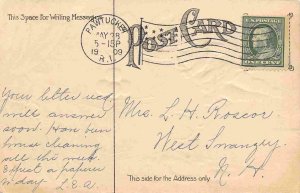 This Space for Writing Messages
POST CARD
PAWTUCKET
MAY 28
5-15P
1909
R.I.
ONE CENT
Your letter rec'd
will answer
soon. Have been
house cleaning
all the week.
Expect a papers
to day L.E.A.
Mrs. L. H. Roscoe
West Swanzey
N. H.
This side for the Address only.